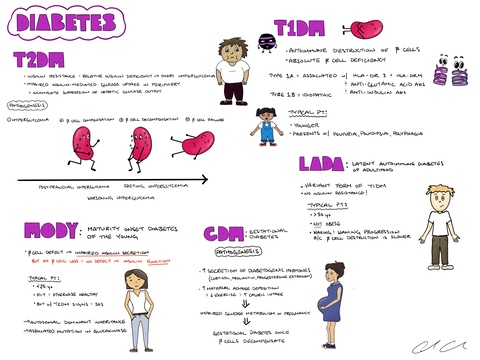 DIABETES
T2DM
• INSULIN RESISTANCE + RELATIVE INSULIN DEFICIENCY → OVERT HYPERGLYCEMIA
• IMPAIRED INSULIN-MEDIATED GLUCOSE UPTAKE IN PERIPHERY
+ INADEQUATE SUPPRESSION OF HEPATIC GLUCOSE OUTPUT
PATHOGENESIS
① HYPERGLYCEMIA ② β CELL COMPENSATION ③ β CELL DECOMPENSATION ④ β CELL FAILURE
POSTPRANDIAL HYPERGLYCEMIA FASTING HYPERGLYCEMIA
WORSENING HYPERGLYCEMIA
T1DM
• AUTOIMMUNE DESTRUCTION OF β CELLS
• ABSOLUTE β CELL DEFICIENCY
TYPE 1A = ASSOCIATED W/ HLA-DR 3 + HLA-DR4
ANTI-GLUTAMIC ACID ABS
+ ANTI-INSULIN ABS
TYPE 1B = IDIOPATHIC
TYPICAL PT:
• YOUNGER
• PRESENTS W/ POLYURIA, POLYDIPSIA, POLYPHAGIA
LADA: LATENT AUTOIMMUNE DIABETES
OF ADULTHOOD
• VARIANT FORM OF T1DM
• NO INSULIN RESISTANCE!
TYPICAL PT:
• NOT OBESE
• WAXING/WANING PROGRESSION
B/C β CELL DESTRUCTION IS SLOWER
MODY: MATURITY ONSET DIABETES
OF THE YOUNG
• β CELL DEFECT → IMPAIRED INSULIN SECRETION
BUT NO β CELL LOSS + NO DEFECT IN INSULIN FUNCTION
TYPICAL PT:
• <25 yo
• FIT + OTHERWISE HEALTHY
• BUT W/ T2DM SIGNS + SXS
• AUTOSOMAL DOMINANT INHERITANCE
• ASSOCIATED MUTATION IN GLUCOKINASE
GDM: GESTATIONAL
DIABETES
PATHOGENESIS
• ↑ SECRETION OF DIABETOGENIC HORMONES
(CORTISOL, PROLACTIN, PROGESTERONE, ESTROGEN)
• ↑ MATERNAL ADIPOSE DEPOSITION
↓ EXERCISE + ↑ CALORIC INTAKE
IMPAIRED GLUCOSE METABOLISM IN PREGNANCY
GESTATIONAL DIABETES ONCE
β CELLS DECOMPENSATE